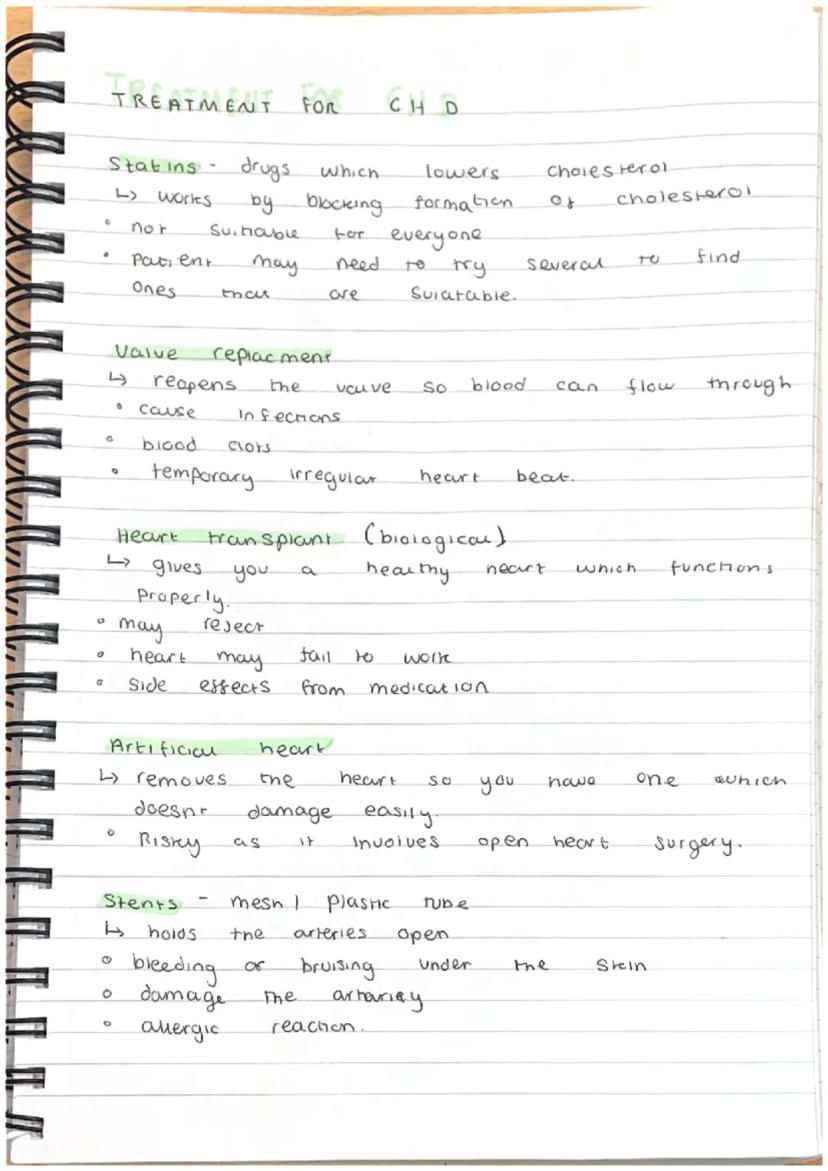 TREATMENT FOR CHD
Statins - drugs which lowers cholesterol
↳ works by blocking formation of cholesterol
• not suitable for everyone
• patient may need to try several to find
ones that are suiatable.
Valve replacment
↳ reopens the valve so blood can flow through
• cause infections
• blood clots
• temporary irregular heart beat.
Heart transplant (biological)
↳ gives you a healthy heart which functions
properly.
• may reject
• heart may fail to work
• side effects from medication
Artificial heart
↳ removes the heart so you have one which
doesnt damage easily.
• Risky as it involves open heart surgery.
Stents - mesh / plastic tube
↳ holds the arteries open
• bleeding or bruising under the skin
• damage the arteriey
• allergic reaction.